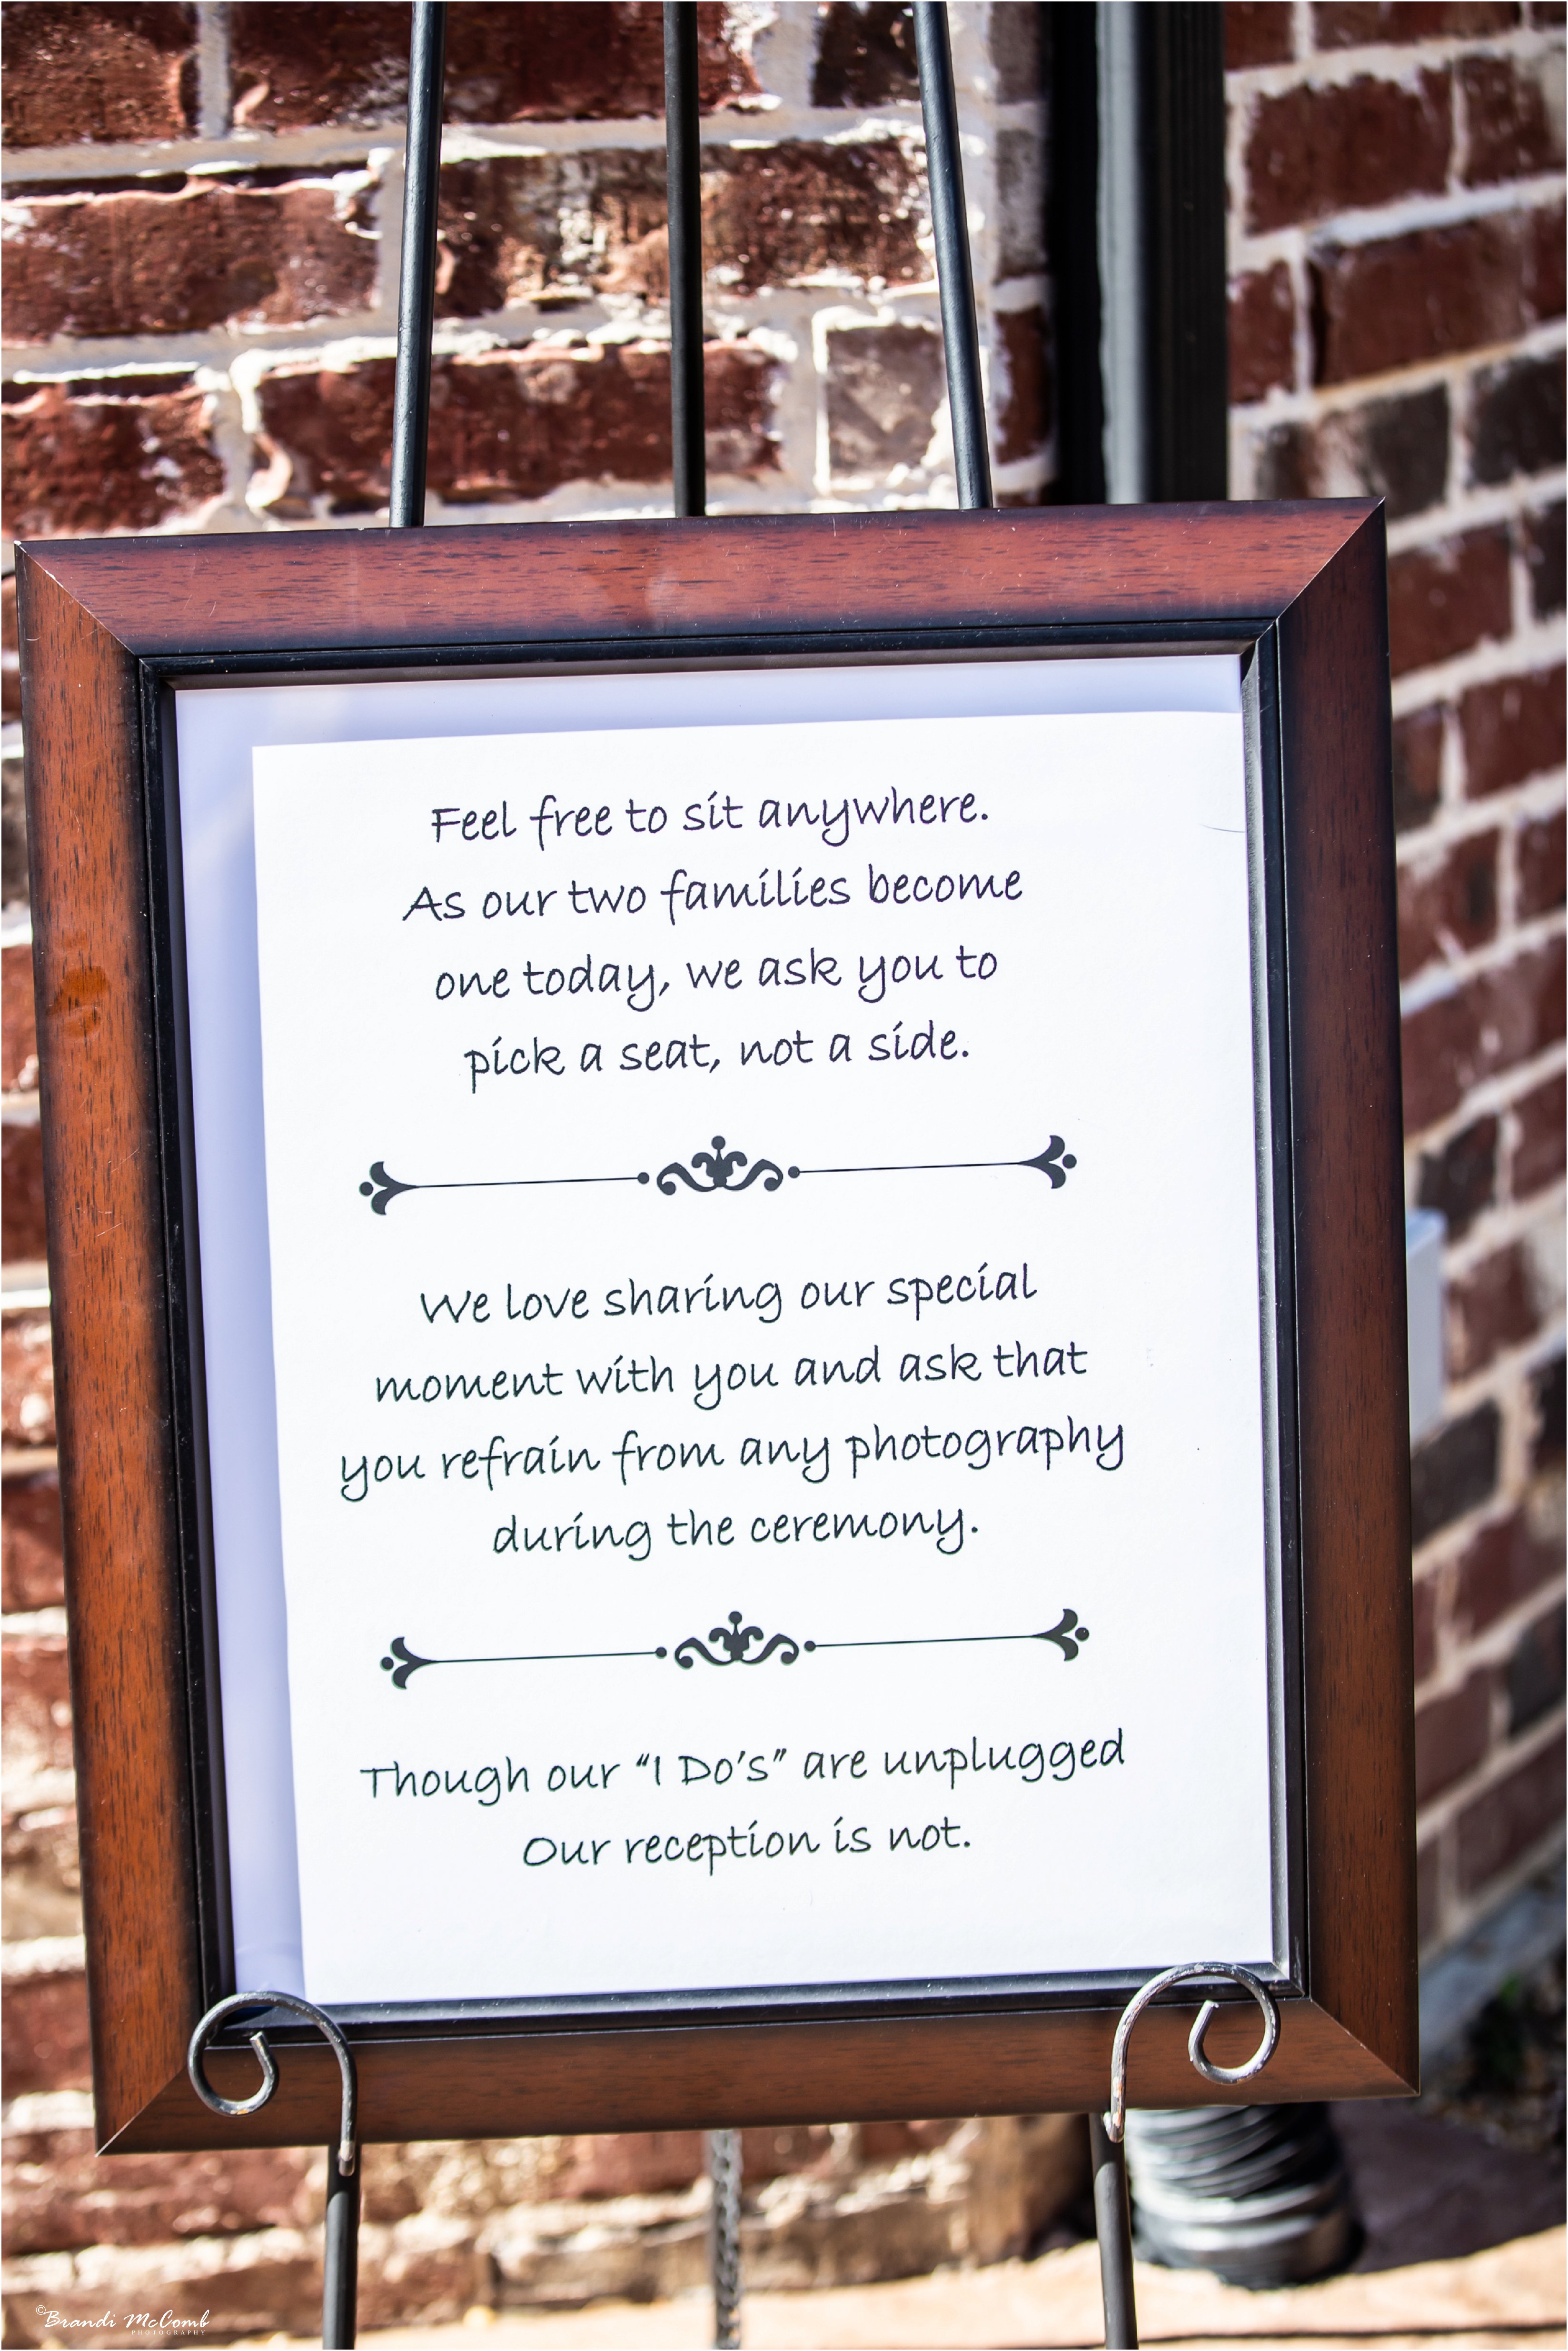 Feel free to sit anywhere.
As our two families become
one today, we ask you to
pick a seat, not a side.
We love sharing our special
moment with you and ask that
you refrain from any photography
during the ceremony.
Though our “I Do’s” are unplugged
Our reception is not.
©Brandi McComb
PHOTOGRAPHY